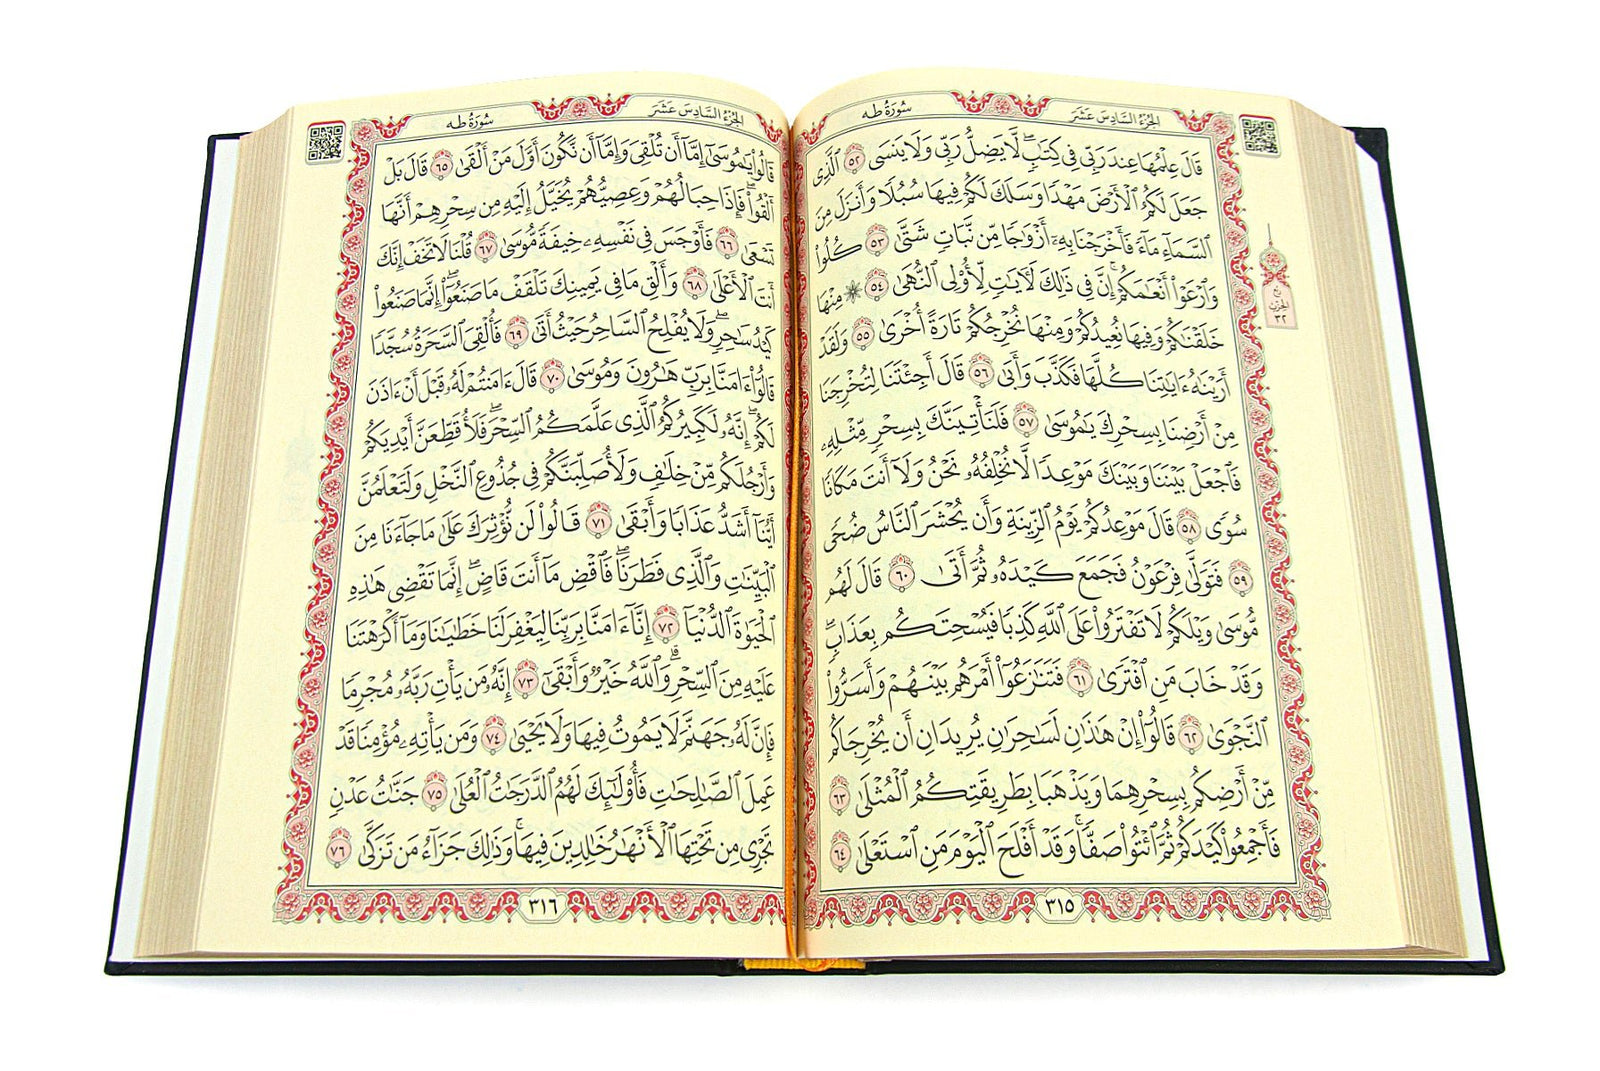 الجزء السادس عشر
سورة طه
قَالَ عِلْمُهَا عِندَ رَبِّي فِي كِتَٰبٍۖ لَّا يَضِلُّ رَبِّي وَلَا يَنسَى ٥٢ ٱلَّذِي
جَعَلَ لَكُمُ ٱلْأَرْضَ مَهْدًا وَسَلَكَ لَكُمْ فِيهَا سُبُلًا وَأَنزَلَ مِنَ
ٱلسَّمَآءِ مَآءً فَأَخْرَجْنَا بِهِۦٓ أَزْوَٰجًا مِّن نَّبَاتٍ شَتَّىٰ ٥٣ كُلُوا۟
وَٱرْعَوْا۟ أَنْعَٰمَكُمْۗ إِنَّ فِي ذَٰلِكَ لَءَايَٰتٍ لِّأُو۟لِي ٱلنُّهَىٰ ٥٤ ۞ مِنْهَا
خَلَقْنَٰكُمْ وَفِيهَا نُعِيدُكُمْ وَمِنْهَا نُخْرِجُكُمْ تَارَةً أُخْرَىٰ ٥٥ وَلَقَدْ
أَرَيْنَٰهُ ءَايَٰتِنَا كُلَّهَا فَكَذَّبَ وَأَبَىٰ ٥٦ قَالَ أَجِئْتَنَا لِتُخْرِجَنَا
مِنْ أَرْضِنَا بِسِحْرِكَ يَٰمُوسَىٰ ٥٧ فَلَنَأْتِيَنَّكَ بِسِحْرٍ مِّثْلِهِۦ
فَٱجْعَلْ بَيْنَنَا وَبَيْنَكَ مَوْعِدًا لَّا نُخْلِفُهُۥ نَحْنُ وَلَآ أَنتَ مَكَانًا
سُوًى ٥٨ قَالَ مَوْعِدُكُمْ يَوْمُ ٱلزِّينَةِ وَأَن يُحْشَرَ ٱلنَّاسُ ضُحًى
٥٩ فَتَوَلَّىٰ فِرْعَوْنُ فَجَمَعَ كَيْدَهُۥ ثُمَّ أَتَىٰ ٦٠ قَالَ لَهُم
مُّوسَىٰ وَيْلَكُمْ لَا تَفْتَرُوا۟ عَلَى ٱللَّهِ كَذِبًا فَيُسْحِتَكُم بِعَذَابٍۖ
وَقَدْ خَابَ مَنِ ٱفْتَرَىٰ ٦١ فَتَنَٰزَعُوٓا۟ أَمْرَهُم بَيْنَهُمْ وَأَسَرُّوا۟
ٱلنَّجْوَىٰ ٦٢ قَالُوٓا۟ إِنْ هَٰذَٰنِ لَسَٰحِرَٰنِ يُرِيدَانِ أَن يُخْرِجَاكُم
مِّنْ أَرْضِكُم بِسِحْرِهِمَا وَيَذْهَبَا بِطَرِيقَتِكُمُ ٱلْمُثْلَىٰ ٦٣
فَأَجْمِعُوا۟ كَيْدَكُمْ ثُمَّ ٱئْتُوا۟ صَفًّاۚ وَقَدْ أَفْلَحَ ٱلْيَوْمَ مَنِ ٱسْتَعْلَىٰ ٦٤
٣١٥
الجزء السادس عشر
سورة طه
قَالُوا۟ يَٰمُوسَىٰٓ إِمَّآ أَن تُلْقِيَ وَإِمَّآ أَن نَّكُونَ أَوَّلَ مَنْ أَلْقَىٰ ٦٥ قَالَ بَلْ
أَلْقُوا۟ۖ فَإِذَا حِبَالُهُمْ وَعِصِيُّهُمْ يُخَيَّلُ إِلَيْهِ مِن سِحْرِهِمْ أَنَّهَا
تَسْعَىٰ ٦٦ فَأَوْجَسَ فِي نَفْسِهِۦ خِيفَةً مُّوسَىٰ ٦٧ قُلْنَا لَا تَخَفْ إِنَّكَ
أَنتَ ٱلْأَعْلَىٰ ٦٨ وَأَلْقِ مَا فِي يَمِينِكَ تَلْقَفْ مَا صَنَعُوٓا۟ۖ إِنَّمَا صَنَعُوا۟
كَيْدُ سَٰحِرٍۖ وَلَا يُفْلِحُ ٱلسَّاحِرُ حَيْثُ أَتَىٰ ٦٩ فَأُلْقِيَ ٱلسَّحَرَةُ سُجَّدًا
قَالُوٓا۟ ءَامَنَّا بِرَبِّ هَٰرُونَ وَمُوسَىٰ ٧٠ قَالَ ءَامَنتُمْ لَهُۥ قَبْلَ أَنْ ءَاذَنَ
لَكُمْۖ إِنَّهُۥ لَكَبِيرُكُمُ ٱلَّذِي عَلَّمَكُمُ ٱلسِّحْرَۖ فَلَأُقَطِّعَنَّ أَيْدِيَكُمْ
وَأَرْجُلَكُم مِّنْ خِلَٰفٍ وَلَأُصَلِّبَنَّكُمْ فِي جُذُوعِ ٱلنَّخْلِ وَلَتَعْلَمُنَّ
أَيُّنَآ أَشَدُّ عَذَابًا وَأَبْقَىٰ ٧١ قَالُوا۟ لَن نُّؤْثِرَكَ عَلَىٰ مَا جَآءَنَا مِنَ
ٱلْبَيِّنَٰتِ وَٱلَّذِي فَطَرَنَاۖ فَٱقْضِ مَآ أَنتَ قَاضٍۖ إِنَّمَا تَقْضِي هَٰذِهِ
ٱلْحَيَوٰةَ ٱلدُّنْيَآ ٧٢ إِنَّآ ءَامَنَّا بِرَبِّنَا لِيَغْفِرَ لَنَا خَطَٰيَٰنَا وَمَآ أَكْرَهْتَنَا
عَلَيْهِ مِنَ ٱلسِّحْرِۗ وَٱللَّهُ خَيْرٌ وَأَبْقَىٰٓ ٧٣ إِنَّهُۥ مَن يَأْتِ رَبَّهُۥ مُجْرِمًا
فَإِنَّ لَهُۥ جَهَنَّمَ لَا يَمُوتُ فِيهَا وَلَا يَحْيَىٰ ٧٤ وَمَن يَأْتِهِۦ مُؤْمِنًا قَدْ
عَمِلَ ٱلصَّٰلِحَٰتِ فَأُو۟لَٰٓئِكَ لَهُمُ ٱلدَّرَجَٰتُ ٱلْعُلَىٰ ٧٥ جَنَّٰتُ عَدْنٍ
تَجْرِي مِن تَحْتِهَا ٱلْأَنْهَٰرُ خَٰلِدِينَ فِيهَاۚ وَذَٰلِكَ جَزَآءُ مَن تَزَكَّىٰ ٧٦
٣١٦